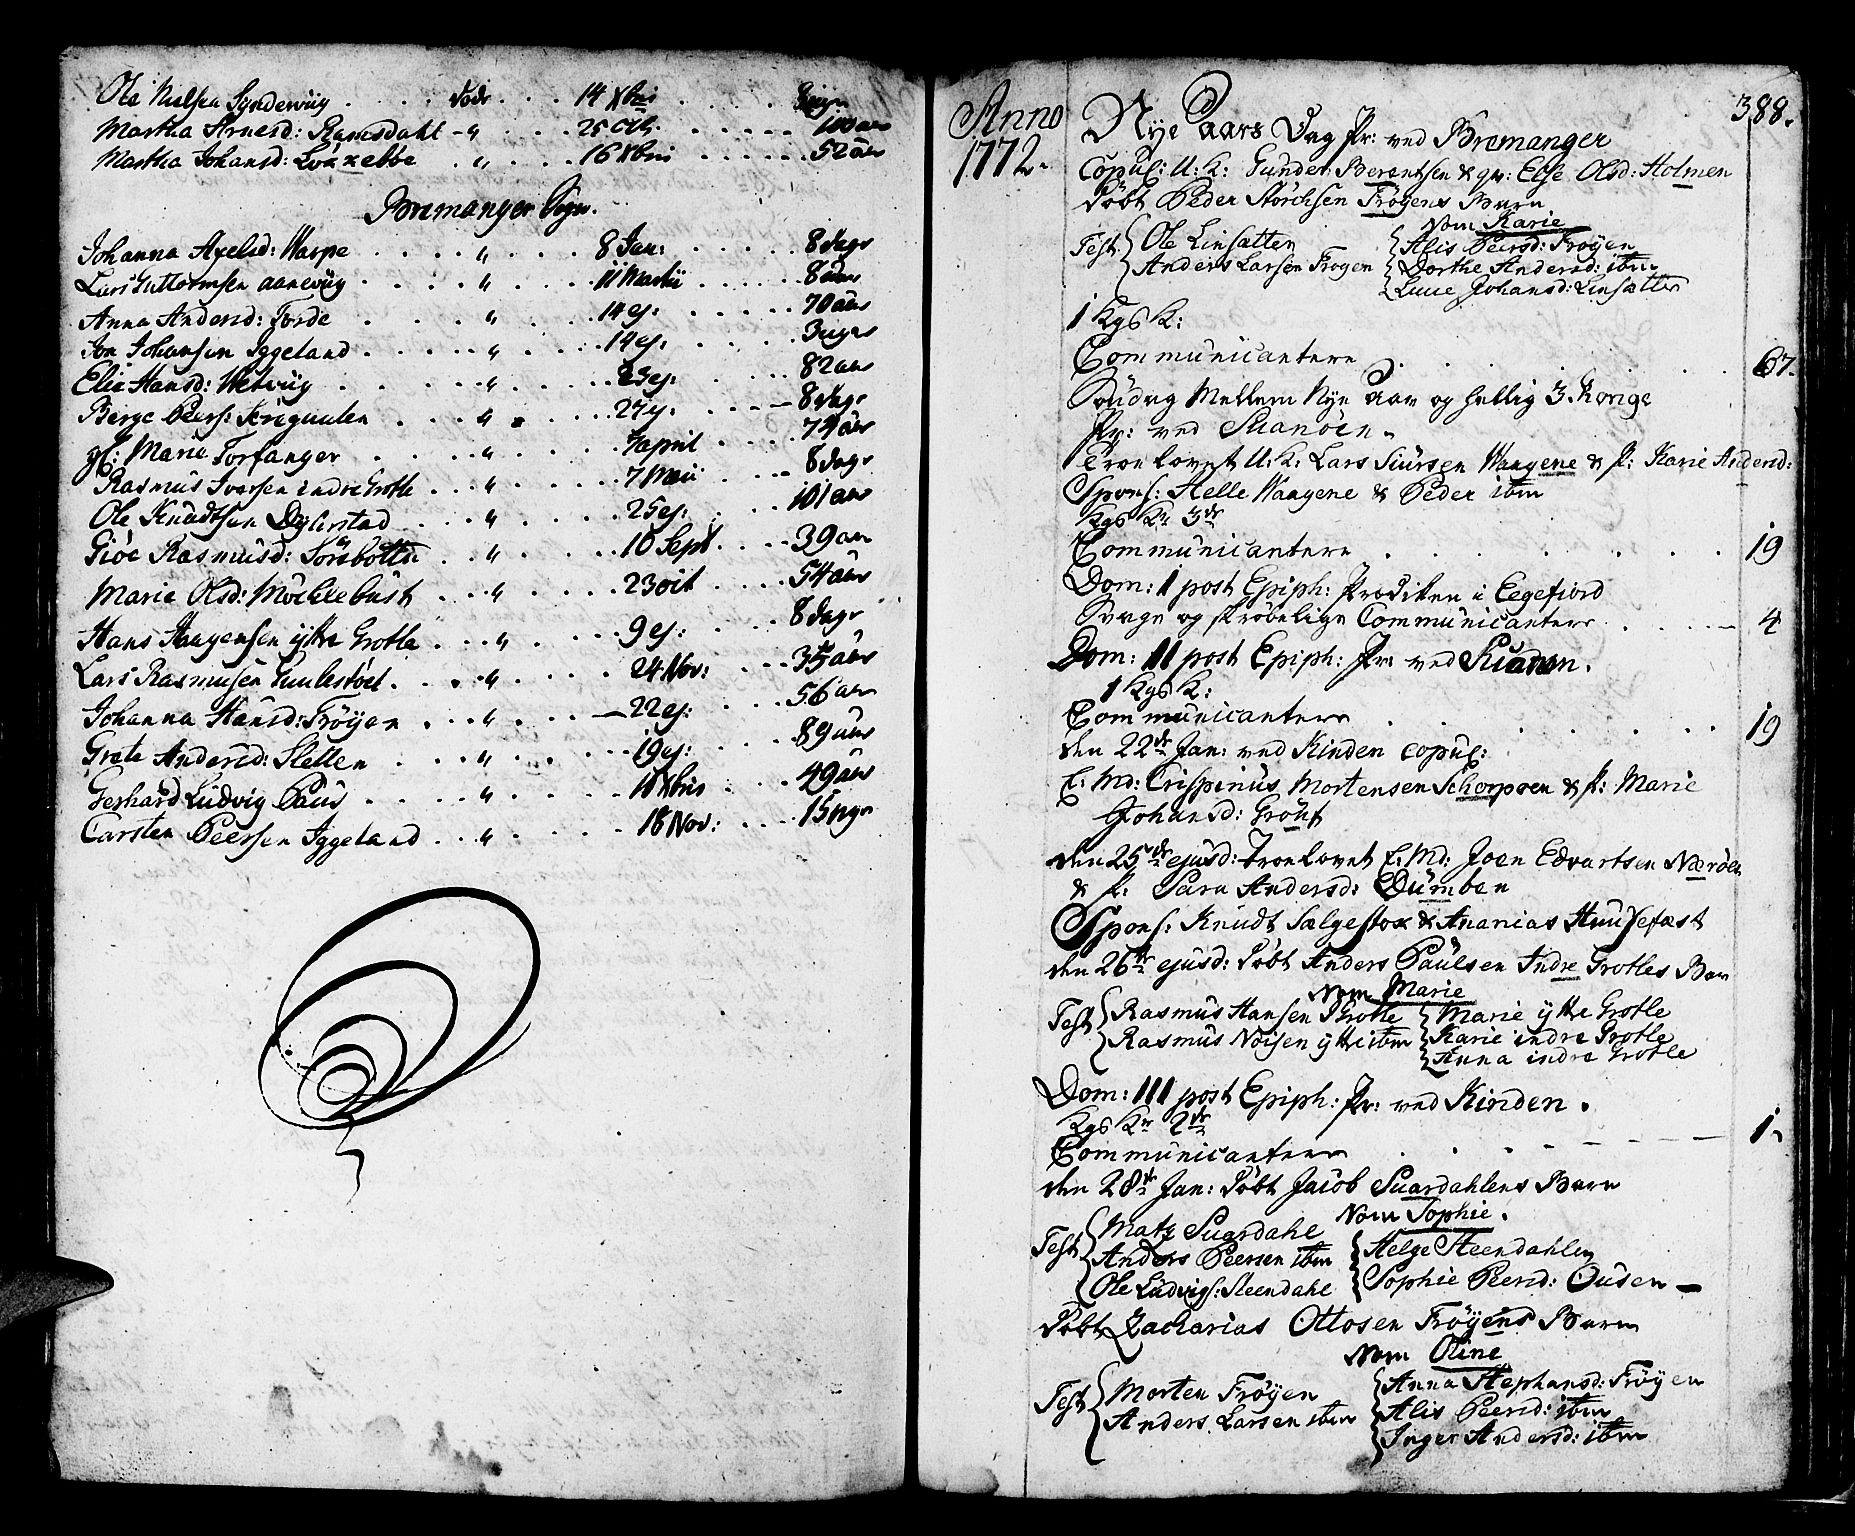 Ole Nielsen Syndeviig . . . . døde . . . 14 Xbris . . . . 8 ugr
Martha Arnesd: Ramsdahl - " . . . 25 Oct. . . . . 100 aar
Martha Johansd: Löxxebøe . . " . . . 16 Xbris . . . . 52 aar
Bremanger Sogn.
Johanna Axelsd: Warpe . . . . " . . . 8 Jan: . . . . 8 dage
Lars Guttormsen aaneviig . . . . " . . . 11 Martii . . . . 8 dage
Anna Andersd: Førde . . . . " . . . 14 ej: . . . . 70 aar
Jon Johansen Iggeland . . . . " . . . 19 ej: . . . . 3 uger
Elie Hansd: Wetviig . . . . " . . . 23 ej: . . . . 82 aar
Berge Peers: . . . . " . . . 27 ej: . . . . 8 dage
gl: Marie Torfanger . . . . " . . . 7 april . . . . 74 aar
Rasmus Iversen indre Grotle . . . " . . . 7 Maii . . . . 8 dage
Ole Knudtsen Dylerstad . . . . " . . . 25 ej: . . . . 101 aar
Giöe Rasmusd: Sörsbotten . . " . . . 10 Sept . . . . 39 aar
Marie Olsd: Möchlebust . . . " . . . 23 oct . . . . 54 aar
Hans Haagensen ytre Grotle . . . " . . . 9 ej: . . . . 8 dage
Lars Rasmusen Gulestöel . . . " . . . 24 Nov: . . . 35 aar
Johanna Hansd: Fröyen . . . " . . . 22 ej: . . . 56 aar
Grete Andersd: Sletten . . . " . . . 19 ej: . . . 89 aar
Gerhard Ludvig Paus . . . . " . . . 10 Xbris . . . 49 aar
Carsten Peersen Iggeland . . . " . . . 18 Nov: . . . 15 ugr
388.
Anno
1772.
Nye Aars Dag Pr: ved Bremanger
Copul: U: K: Gunder Berentsen & qv: Else Olsd: Holmen
Döbt Peder Störchsen Fröyens Barn
Nom Karie
Test { Ole Linsætter
Anders Larsen Frøyen
{ Alis Peersd: Fröyen
Dorthe Andersd: ibm
Lucie Johansd: Linsætter
1 Kgs K:
Communicantere . . . . . . 67.
Søndag Mellem Nye Aar og hellig 3. Konge
Pr: ved Suanöen.
Troelovet U: K: Lars Siursen Waagene & P: Karie Andersd:
Spons: Helle Waagene & Peder ibm
Kgs Kr 3de
Communicantere . . . . . . 19
Dom: I post Epiph: Prædiken i Eegefiord
Svage og skröbelige Communicantere . . . . 4
Dom: II post Epiph: Pr: ved Suanøn.
1 Kgs K:
Communicantere . . . . . . 19
den 22de Jan: ved Kinden copul:
E: Md: Crispinus Mortensen Schorpøen & P: Marie
Johansd: Gröuf
den 25de ejusd: Troelovet E: Md: Joen Edvartsen Nærøen
& P: Sara Andersd: Dümben
Spons: Knudt Salgestox & Ananias Husefæst
den 26de ejusd: döbt Anders Paulsen Indre Grotles Barn
Nom Marie
Test { Rasmus Hansen Grotle
Rasmus Noisen ytre ibm
{ Marie ytre Grotle
Karie indre Grotle
Anna indre Grotle
Dom: III post Epiph: Pr: ved Kinden.
Kgs Kr 2de
Communicantere . . . . . . 1.
den 28de Jan: döbt Jacob Suardahlens Barn
Nom Sophie.
Test { Matz Suardahl
Anders Peersen ibm
Ole Ludvigs: Steendahl
{ Helge Steendahlen
Sophie Peersd: Ousen
döbt Zacharias Ottosen Fröyens Barn
Nom Oline
Test { Morten Fröyen
Anders Larsen ibm
{ Anna Stephansd: Fröyen
Alis Peersd: ibm
Inger Andersd: ibm